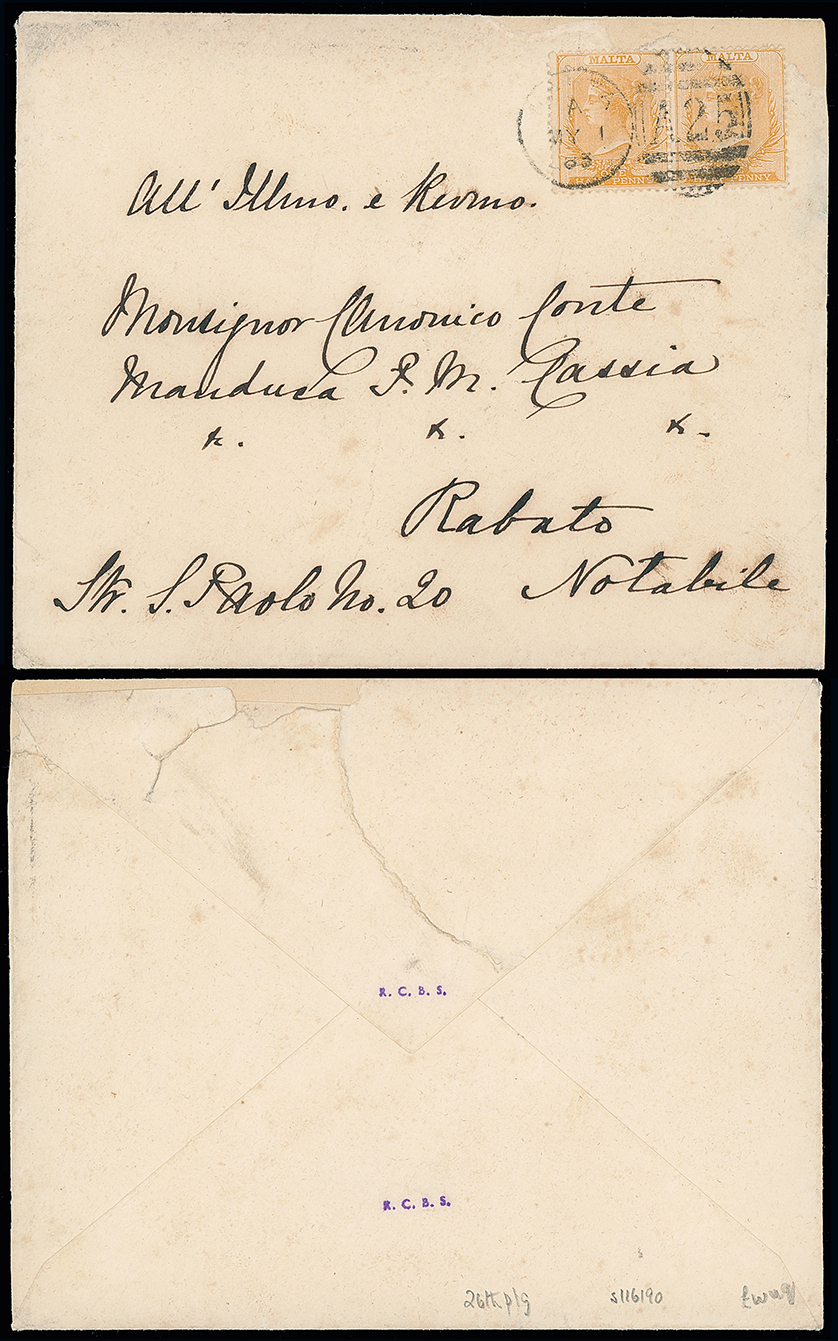 MALTA MALTA
A
MY 1
83
A25
HALF PENNY
PENNY
All' Illmo. e Revmo.
Monsignor Canonico Conte
Manduca P. M. Cassia
Rabato
Str. S. Paolo No. 20 Notabile
R. C. B. S.
R. C. B. S.
S116190